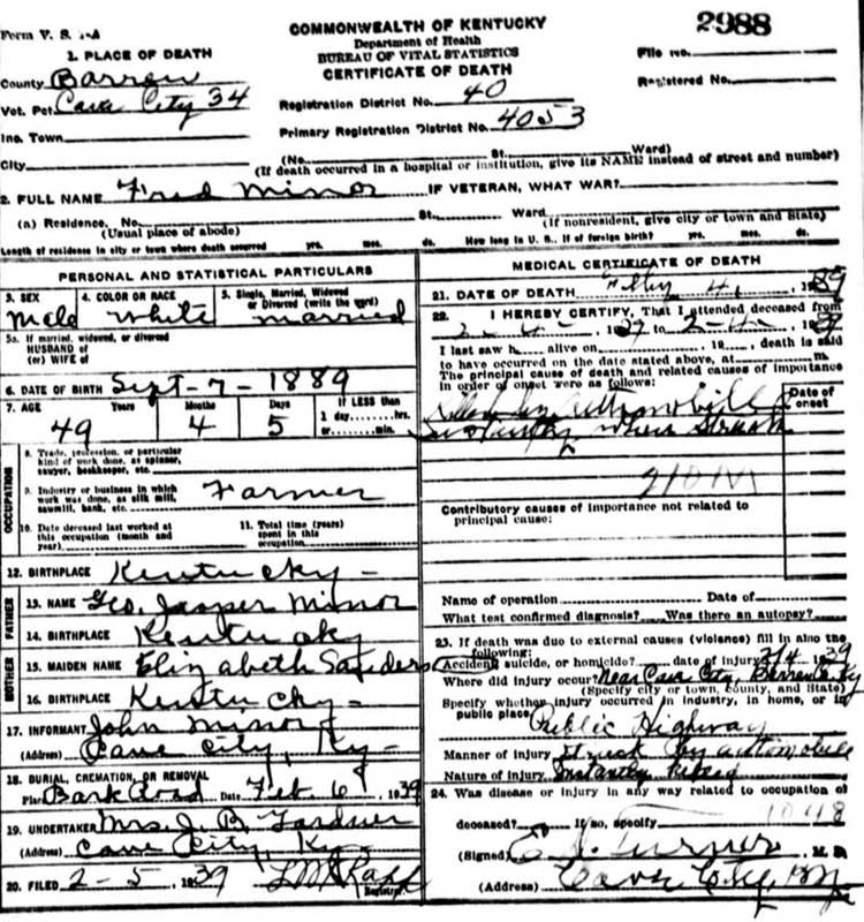 Form V. S. 1-A
COMMONWEALTH OF KENTUCKY
Department of Health
BUREAU OF VITAL STATISTICS
CERTIFICATE OF DEATH
2988
File No.
Registered No.
1. PLACE OF DEATH
County Barren
Vot. Pct. Cave City 34
Registration District No. 40
Primary Registration District No. 4053
Inc. Town
City
(No. St. Ward)
(If death occurred in a hospital or institution, give its NAME instead of street and number)
2. FULL NAME Fred Minor IF VETERAN, WHAT WAR?
(a) Residence. No. St. Ward
(Usual place of abode) (If nonresident, give city or town and State)
Length of residence in city or town where death occurred yrs. mos. ds. How long in U. S., if of foreign birth? yrs. mos. ds.
PERSONAL AND STATISTICAL PARTICULARS
3. SEX 4. COLOR OR RACE 5. Single, Married, Widowed or Divorced (write the word)
Male white married
5a. If married, widowed, or divorced
HUSBAND of
(or) WIFE of
6. DATE OF BIRTH Sept-7-1889
7. AGE Years Months Days If LESS than
1 day hrs.
or min.
49 4 5
OCCUPATION
8. Trade, profession, or particular
kind of work done, as spinner,
sawyer, bookkeeper, etc.
9. Industry or business in which
work was done, as silk mill,
sawmill, bank, etc. Farmer
10. Date deceased last worked at
this occupation (month and
year)
11. Total time (years)
spent in this
occupation
12. BIRTHPLACE Kentucky -
FATHER
13. NAME Geo. Jasper Minor
14. BIRTHPLACE Kentucky
MOTHER
15. MAIDEN NAME Elizabeth Sanders
16. BIRTHPLACE Kentucky -
17. INFORMANT John Minor
(Address) Cave City, Ky -
18. BURIAL, CREMATION, OR REMOVAL
Place Date Feb. 6, 1939
19. UNDERTAKER Mrs. J. B. Gardner
(Address) Cave City, Ky
20. FILED 2-5, 1939
Registrar
MEDICAL CERTIFICATE OF DEATH
21. DATE OF DEATH 4, 1939
22. I HEREBY CERTIFY, That I attended deceased from
2-4-, 1939 to 2-4-, 1939
I last saw h alive on , 19 , death is said
to have occurred on the date stated above, at m.
The principal cause of death and related causes of importance
in order of onset were as follows:
Date of
onset
Killed by automobile
when struck
210M
Contributory causes of importance not related to
principal cause:
Name of operation Date of
What test confirmed diagnosis? Was there an autopsy?
23. If death was due to external causes (violence) fill in also the
following:
Accident, suicide, or homicide? date of injury 2/4 1939
Where did injury occur? Near Cave City, Barren Co. Ky
(Specify city or town, county, and State)
Specify whether injury occurred in industry, in home, or in
public place Public Highway
Manner of injury Struck by automobile
Nature of injury Instantly killed
24. Was disease or injury in any way related to occupation of
deceased? If so, specify
(Signed) Turner, M. D.
(Address) Cave City, Ky